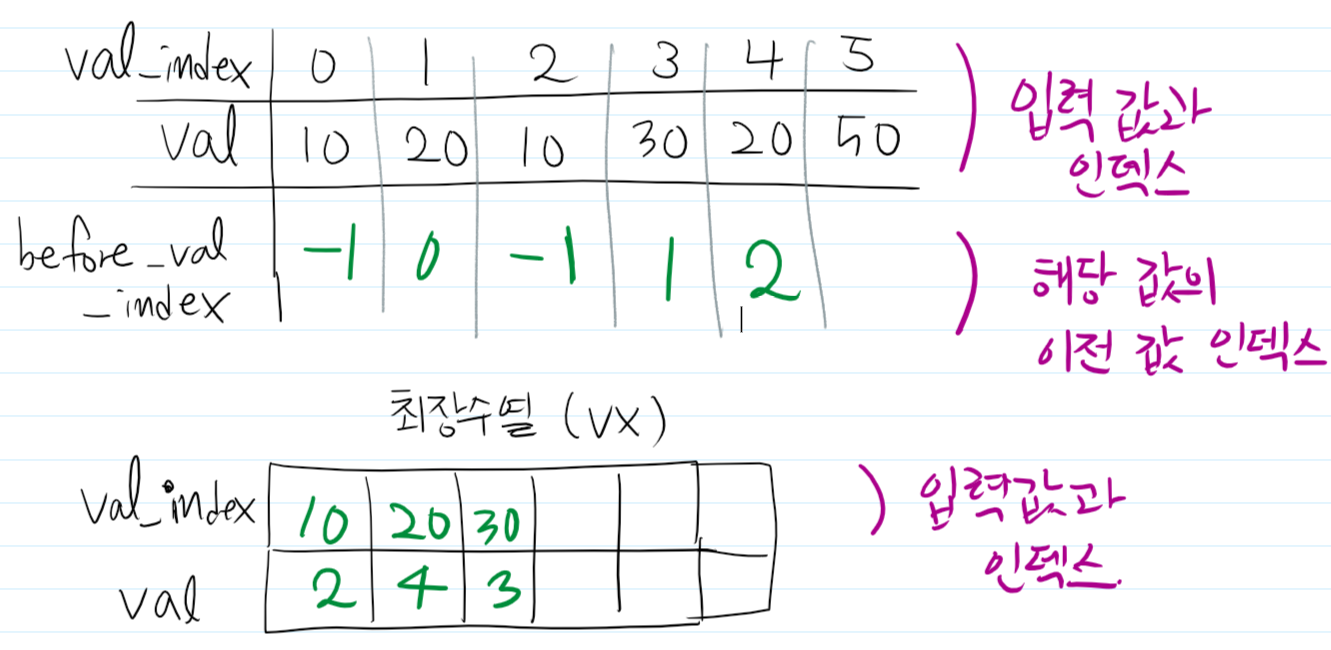 val_index 0 1 2 3 4 5
val 10 20 10 30 20 50
) 입력 값과
인덱스
before_val
_index -1 0 -1 1 2
) 해당 값의
이전 값 인덱스
최장수열 (VX)
val_index 10 20 30
val 2 4 3
) 입력값과
인덱스.